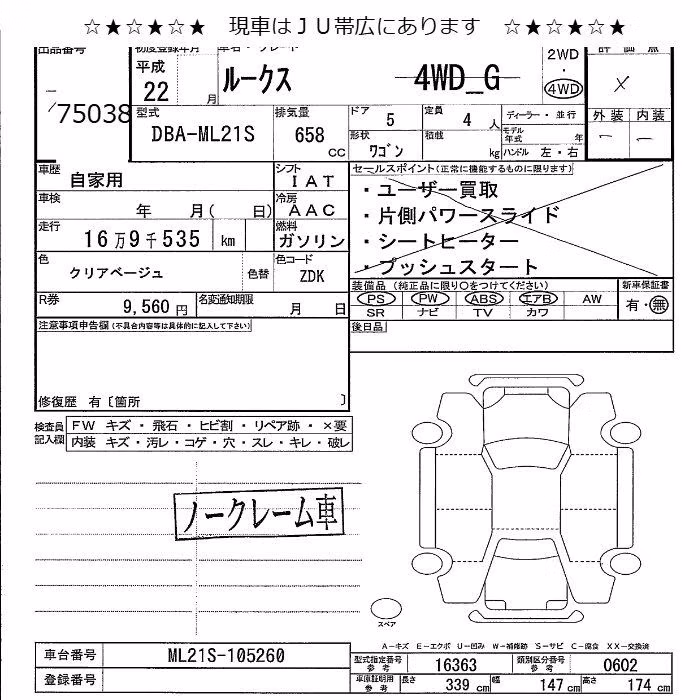 ☆★☆★☆★ 現車はＪＵ帯広にあります ☆★☆★☆★
出品番号 初度登録年月 車名・グレード 評価点
平成 22 月 ルークス 4WD_G 2WD ・ 4WD X
75038
型式 DBA-ML21S 排気量 658 CC ドア 5 定員 4 人 ディーラー・並行 外装 内装
形状 ワゴン 積載 kg モデル年式 年 ハンドル 左・右 － －
車歴 自家用 シフト ＩＡＴ
車検 年 月( 日) 冷房 ＡＡＣ
走行 16万9千535 km 燃料 ガソリン
色 クリアベージュ 色替 色コード ZDK
R券 9,560円 名変通知期限 月 日
セールスポイント(正常に機能するものに限ります)
・ユーザー買取
・片側パワースライド
・シートヒーター
・プッシュスタート
装備品 (純正品に限り○をつけてください) 新車保証書
PS PW ABS エアB AW 有・無
SR ナビ TV カワ
後日品
注意事項申告欄(不具合内容等は具体的に記入して下さい)
修復歴 有〔箇所 〕
検査員記入欄 FW キズ・飛石・ヒビ割・リペア跡・×要
内装 キズ・汚レ・コゲ・穴・スレ・キレ・破レ
ノークレーム車
スペア
A－キズ E－エクボ U－凹み W－補修跡 S－サビ C－腐食 XX－交換済
車台番号 ML21S-105260
登録番号
型式指定番号 参考 16363 類別区分番号 参考 0602
車庫証明用 参考 長さ 339 cm 幅 147 cm 高さ 174 cm